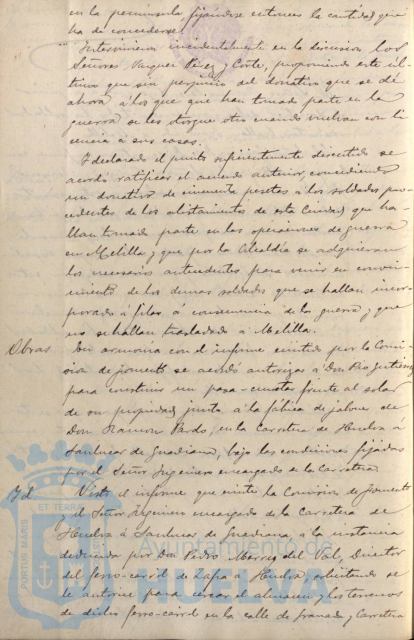 en la península, fijándose entonces la cantidad que
ha de concederse.
Intervinieron incidentalmente en la discusion los
Señores Vazquez Perez y Corte, proponiendo este úl-
timo que sin perjuicio del donativo que se dé
ahora, á los que han tomado parte en la
guerra se les otorgue otro cuando vuelvan con li
cencia á sus casas.
Y declarado el punto suficientemente discutido se
acordó ratificar el acuerdo anterior, concediendo
un donativo de cincuenta pesetas á los soldados pro-
cedentes de los alistamientos de esta Ciudad que ha-
llan tomado parte en las operaciones de guerra
en Melilla, y que por la Alcaldia se adquieran
los necesarios antecedentes para venir en conoci-
miento de los demas soldados que se hallan incor-
porados á filas á consecuencia de la guerra, y que
no se hallan trasladados á Melilla.
Obras De armonia con el informe emitido por la Comi-
sion de fomento se acordó autorizar á Don Pio Gutierrez
para construir un pasa-cunetas frente al solar
de su propiedad junto á la fábrica de jabones de
Don Ramon Pardo, en la Carretera de Huelva á
Sanlucar de Guadiana, bajo las condiciones fijadas
por el Señor Ingeniero encargado de la Carretera.
Id. Visto el informe que emite la Comision de fomento
y el Señor Ingeniero encargado de la Carretera de
Huelva á Sanlucar de Guadiana, á la instancia
deducida por Don Pedro del Val, Director
del ferro-carril de Zafra á Huelva, solicitando se
le autorice para cercar el almacen y los terrenos
de dicho ferro-carril en la calle de y Carretera
PORTUS MARIS ET TERRE
Ayuntamiento de
HUELVA